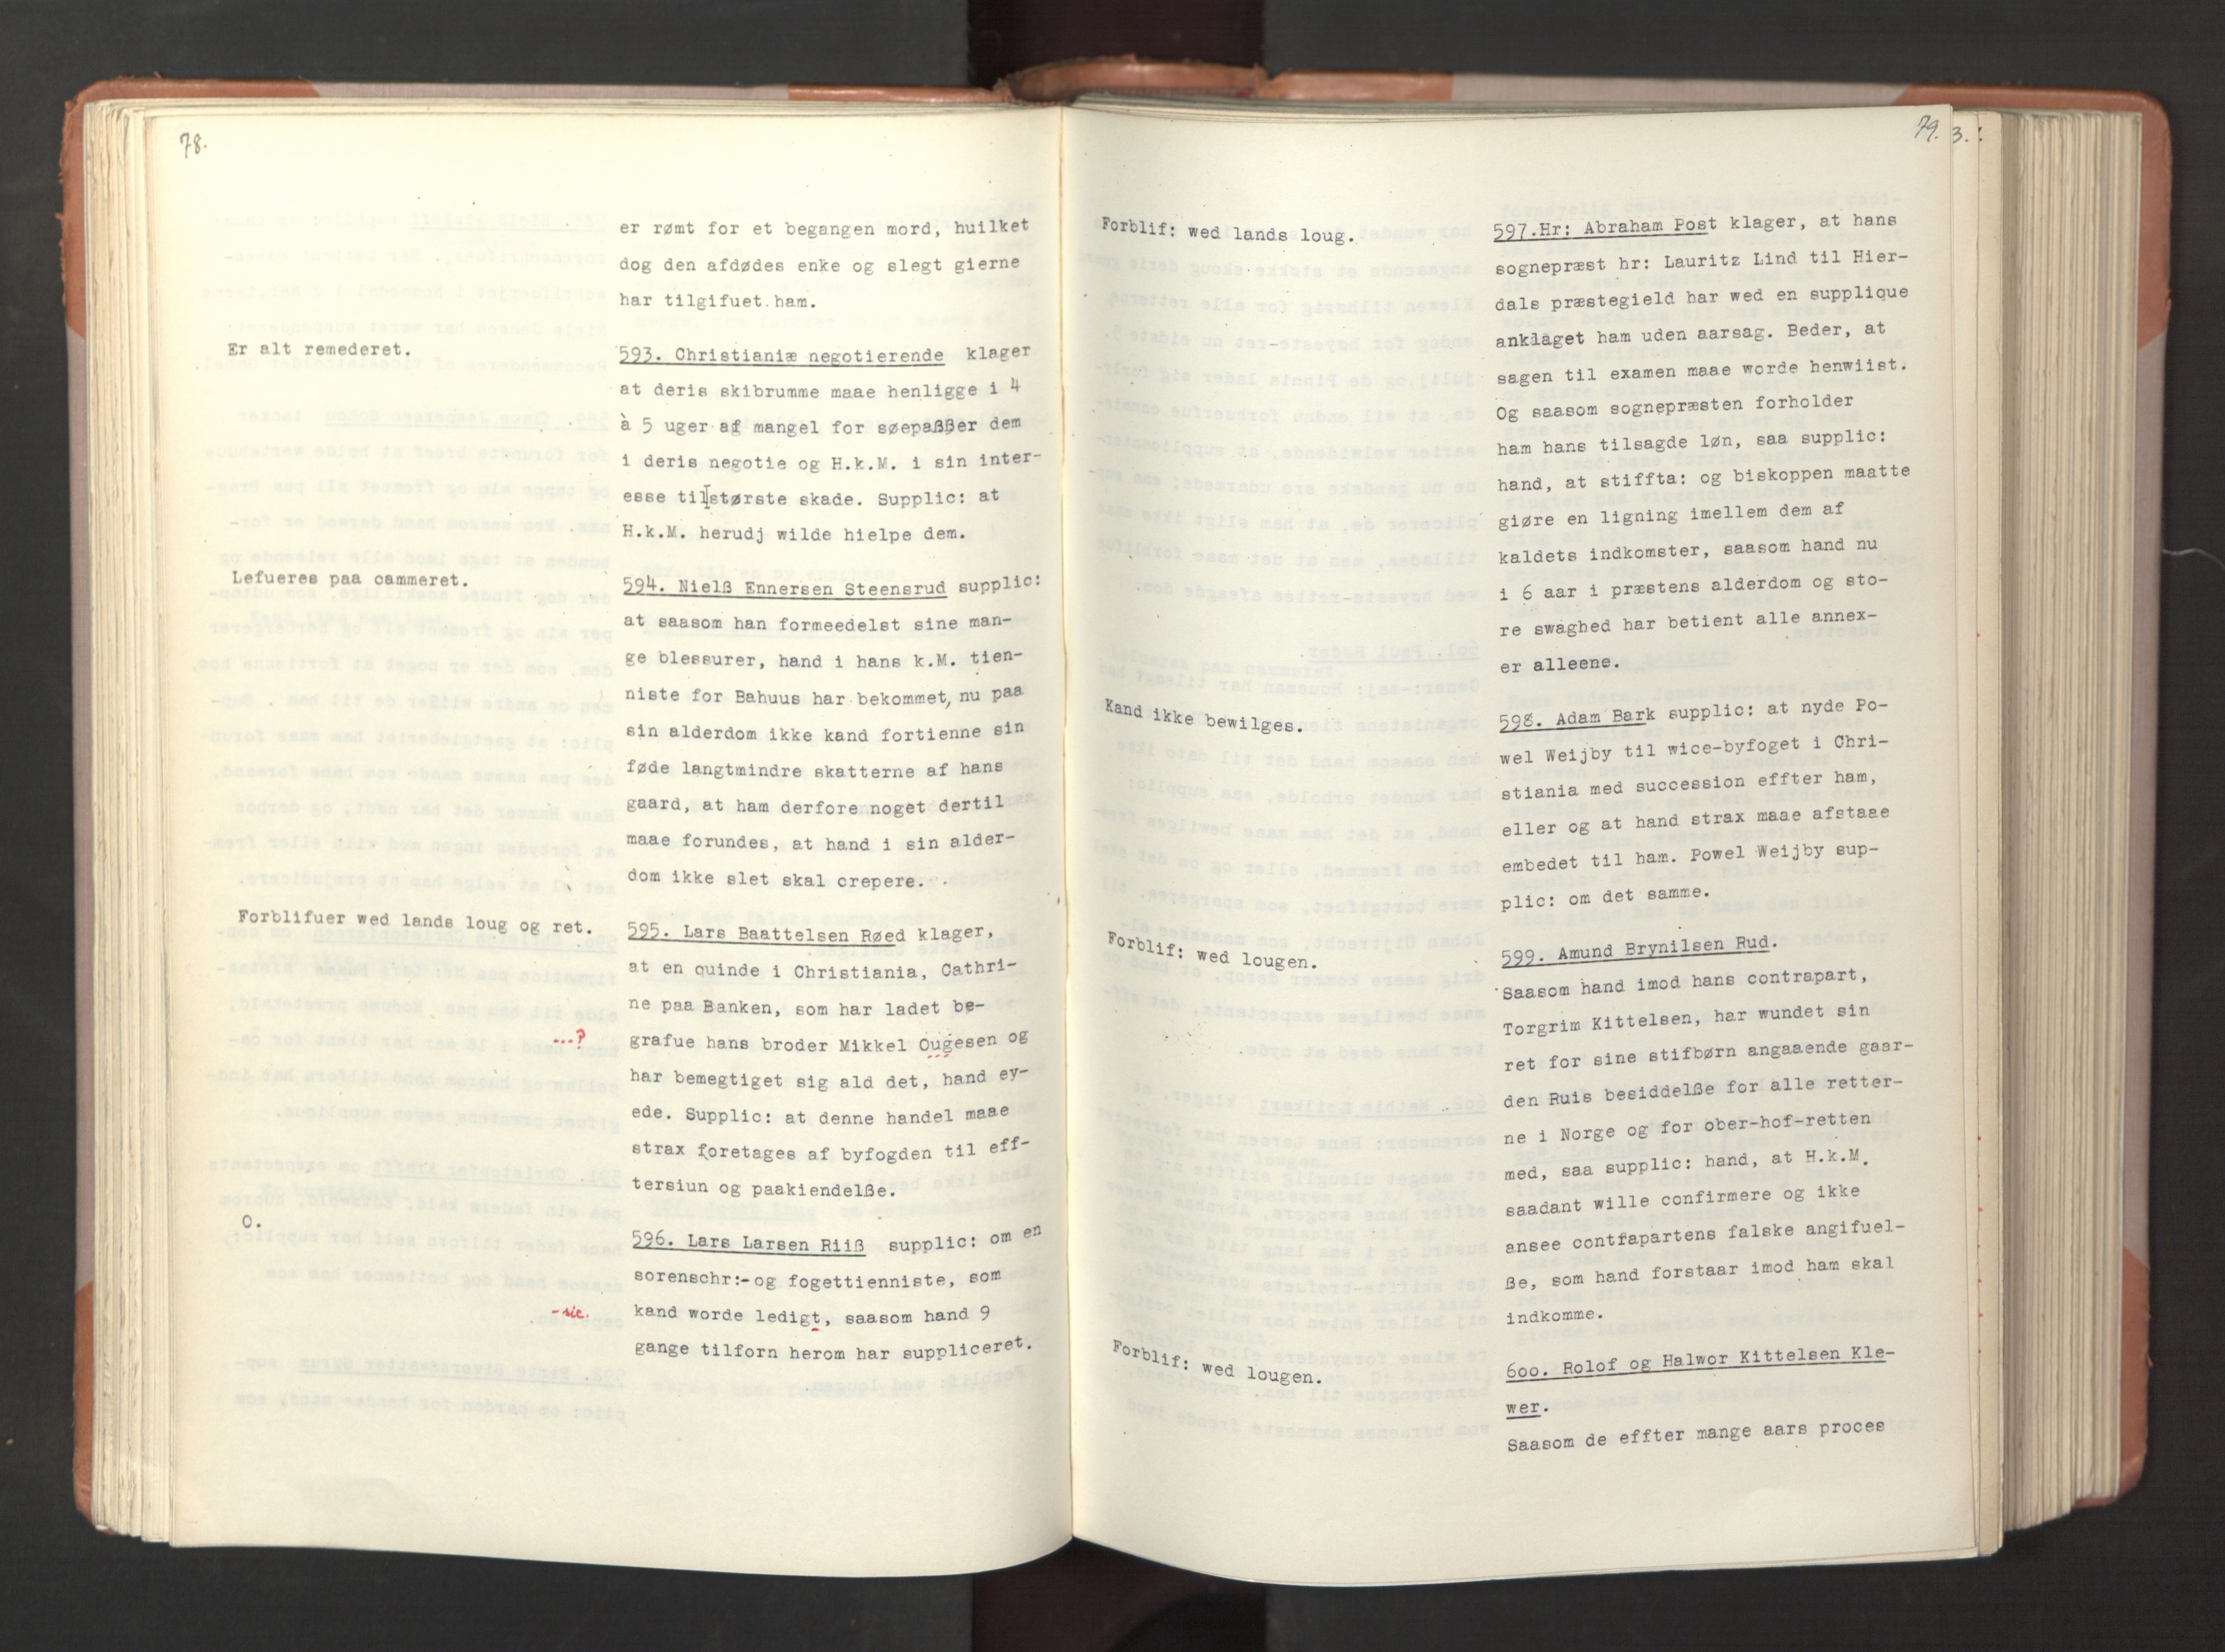 78.
er rømt for et begangen mord, huilket
dog den afdødes enke og slegt gierne
har tilgifuet ham.
Er alt remederet.
593. Christianiæ negotierende klager
at deris skibrumme maae henligge i 4
à 5 uger af mangel for søepaßßer dem
i deris negotie og H.k.M. i sin inter-
esse til største skade. Supplic: at
H.k.M. herudj wilde hielpe dem.
Lefueres paa cammeret.
594. Nielß Ennersen Steensrud supplic:
at saasom han formeedelst sine man-
ge blessurer, hand i hans k.M. tien-
niste for Bahuus har bekommet, nu paa
sin alderdom ikke kand fortienne sin
føde langtmindre skatterne af hans
gaard, at ham derfore noget dertil
maae forundes, at hand i sin alder-
dom ikke slet skal crepere.
Forblifuer wed lands loug og ret.
595. Lars Baattelsen Røed klager,
at en quinde i Christiania, Cathri-
ne paa Banken, som har ladet be-
...?
grafue hans broder Mikkel Ougesen og
har bemegtiget sig ald det, hand ey-
ede. Supplic: at denne handel maae
strax foretages af byfogden til eff-
tersiun og paakiendelße.
O.
596. Lars Larsen Riiß supplic: om en
sorenschr:-og fogettienniste, som
- sic.
kand worde ledigt, saasom hand 9
gange tilforn herom har suppliceret.
79.
3.
Forblif: wed lands loug.
597.Hr: Abraham Post klager, at hans
sognepræst hr: Lauritz Lind til Hier-
dals præstegield har wed en supplique
anklaget ham uden aarsag. Beder, at
sagen til examen maae worde henwiist.
Og saasom sognepræsten forholder
ham hans tilsagde løn, saa supplic:
hand, at stiffta: og biskoppen maatte
giøre en ligning imellem dem af
kaldets indkomster, saasom hand nu
i 6 aar i præstens alderdom og sto-
re swaghed har betient alle annex-
er alleene.
Kand ikke bewilges.
598. Adam Bark supplic: at nyde Po-
wel Weijby til wice-byfoget i Chri-
stiania med succession effter ham,
eller og at hand strax maae afstaae
embedet til ham. Powel Weijby sup-
plic: om det samme.
Forblif: wed lougen.
599. Amund Brynilsen Rud.
Saasom hand imod hans contrapart,
Torgrim Kittelsen, har wundet sin
ret for sine stifbørn angaaende gaar-
den Ruis besiddelße for alle retter-
ne i Norge og for ober-hof-retten
med, saa supplic: hand, at H.k.M.
saadant wille confirmere og ikke
ansee contrapartens falske angifuel-
ße, som hand forstaar imod ham skal
indkomme.
Forblif: wed lougen.
600. Rolof og Halwor Kittelsen Kle-
wer.
Saasom de effter mange aars proces